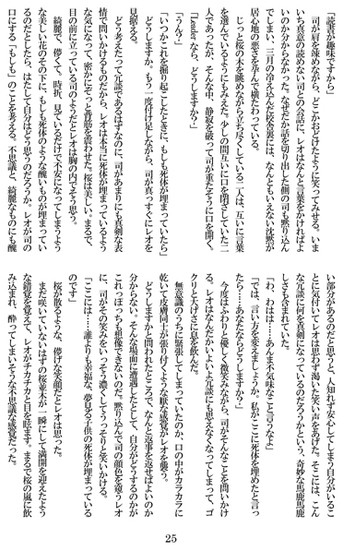 「読書が趣味ですから」
　司が肩を竦めながら、どこかおどけたように笑ってみせる。いま
いち真意の読めない司との会話に、レオはなんと言葉をかければよ
いのか分からなかった。なぜだか話を切り出した側の司も黙り込ん
でしまい、三月の冷え込んだ校舎裏には、なんともいえない沈黙が
居心地の悪さを孕んで横たわっている。
　じっと桜の木を眺めながら立ち尽くしている二人は、互いに言葉
を選んでいるようにもみえた。少しの間互いに口を閉ざしていた二
人であったが、そんな中、静寂を破って司が重たそうに口を開く。
「Leaderなら、どうしますか？」
「うん？」
「いつかこれを掘り起こしたときに、もしも死体が埋まっていたら」
　どうしますか。もう一度付け足しながら、司が真っすぐにレオを
見据える。
　どう考えたって冗談であるはずなのに、司があまりにも真剣な表
情で問いかけるものだから、レオは本当に死体が埋まっているよう
な気になって、密かにぞっと背筋を震わせた。桜は美しい。まるで、
目の前に立っている司のようだとレオは胸の内でそう思う。
　綺麗で、儚くて、時折、見ているだけで不安になってしまうよう
な美しい花のその下に、もしも死体のような醜いものが埋まってい
るのだとしたら、はたして自分はどう思うのだろうか。レオが司の
口にする「もしも」のことを考える。不思議と、綺麗なものにも醜
い部分があるのだと思うと、人知れず安心してしまう自分がいるこ
とに気付いてレオは思わず渇いた笑い声をあげた。そこには、こん
な冗談に何を真剣になっているのだろうかという、奇妙な馬鹿馬鹿
しさも含まれていた。
「わ、わはは……あんま不気味なこと言うなよ」
「では、言い方を変えましょうか。私がここに死体を埋めたと言っ
たら……あなたならどうしますか？」
　今度はふわりと優しく微笑みながら、司がそんなことを問いかけ
る。レオはなんだかいよいよ冗談にも思えなくなってしまって、ゴ
クリと大げさに息を飲んだ。
　無意識のうちに緊張してしまっていたのか、口の中がカラカラに
乾いて皮膚同士が張り付くような厭な感覚がレオを襲う。
　どうしますかと問われたところで、なんと返事を返せばよいのか
分からない。そんな場面に遭遇したとして、自分がどうするのかが
これっぽっちも想像できないのだ。黙り込んで司の顔色を窺うレオ
に、司がその笑みをいっそう濃くしてうっそりと笑いかける。
「ここには……誰よりも幸福な、夢見る子供の死体が埋まっている
のです」
　桜が散るような、儚げな笑顔だとレオは思った。
　まだ咲いていないはずの桜並木が一瞬にして満開を迎えたよう
な錯覚を覚えて、レオがチカチカと目を眩ます。まるで桜の嵐に飲
み込まれ、酔ってしまいそうな不思議な感覚だった。
25